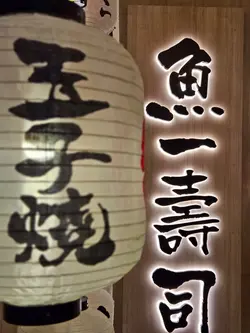 玉子燒
魚一壽司